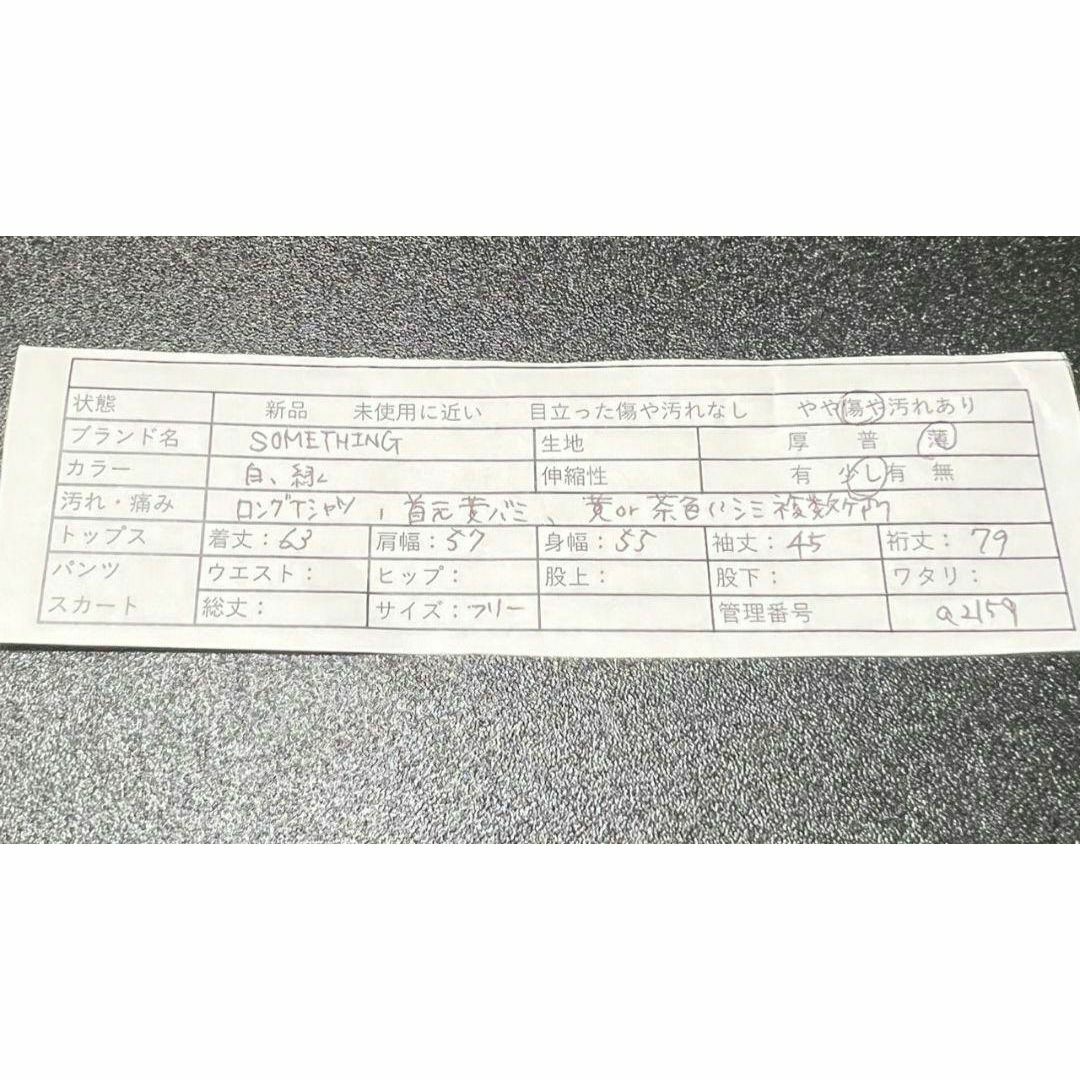 状態 新品 未使用に近い 目立った傷や汚れなし やや傷や汚れあり
ブランド名 SOMETHING 生地 厚 普 薄
カラー 白、緑 伸縮性 有 少し有 無
汚れ・痛み ロングTシャツ, 首元黄バミ、黄or茶色いシミ複数ヶ所
トップス 着丈:63 肩幅:57 身幅:55 袖丈:45 裄丈:79
パンツ ウエスト: ヒップ: 股上: 股下: ワタリ:
スカート 総丈: サイズ:フリー 管理番号 a2159